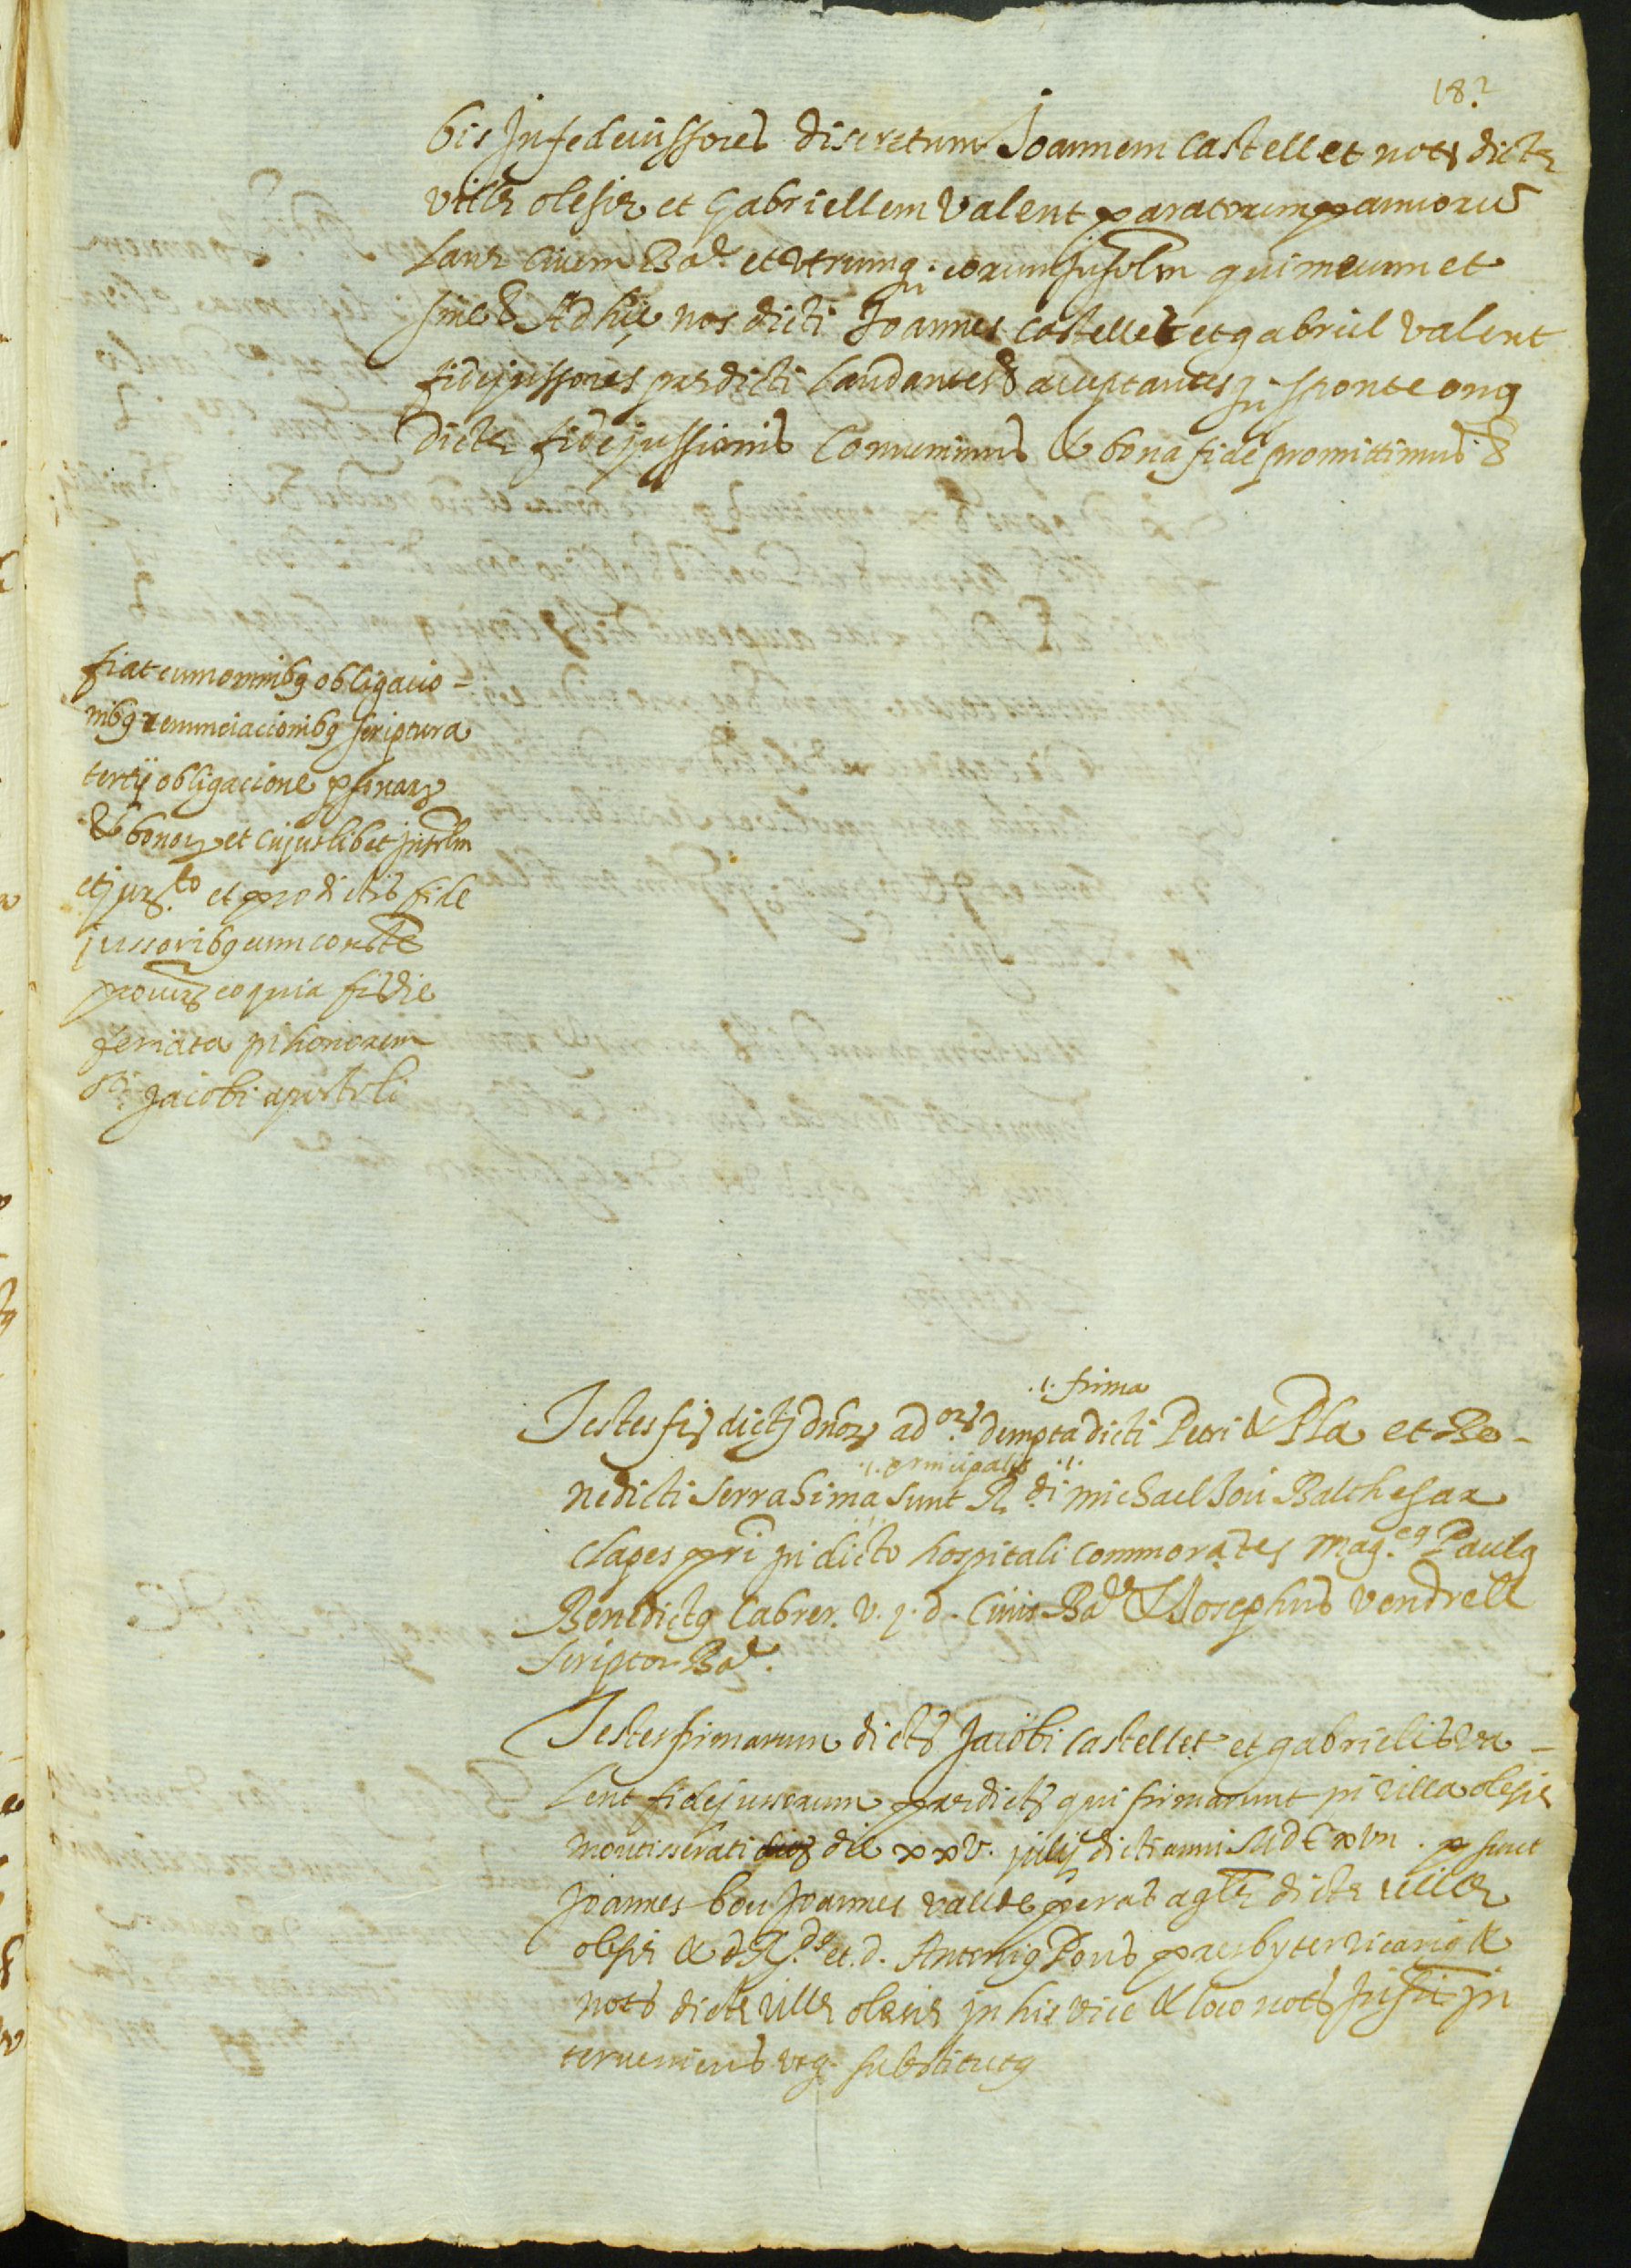 182
bis in fedeiussores discretum Joannem Castellet notm dictæ
villæ olesiæ et Gabriellem Valent paratorem pannorum
lanæ civem Ba.e et utrumq. eorum insolm qui mecum et
sine & Ad hec nos dicti Joannes Castellet et gabriel Valent
fidejussores prædicti laudantes & acceptantes in sponte onq
dictæ fidejussionis Convenimus & bona fide promittimus &
fiat cum omnibq obligacio-
nibq renunciacionibq scriptura
tertij obligacione psonarz
& bonorz et cujuslibet insolm
et jurz.to et pro dictis fide
jussoribq cum
eo quia fit die
feriata in honorem
Sti. Jacobi apostoli
.1. firma
Testes fiz dictz dnorz ad.orz dempta dicti Petri & Pla et Be-
.1. principalis .1.
nedicti Serrahima sunt R.di michael Joii Balthesar
Clapes pri in dicto hospitali commorates Mag.cq Paulq
Benedictq Cabrer. V. j. d. Civis Ba.e & Josephus Vendrell
scriptor Ba.e
Testes firmarum dictz Jacobi Castellet et gabrielis Va-
lent fidejussorum prædictz qui firmarunt in villa olesiæ
montisserati die xxv. julij dicti anni MDCxvii. p sunt
Joannes bou Joannes agræ dictæ villæ
olesiæ & d R.ds et. d. Antoniq Pons præsbyter vicariq &
nots dictæ villæ olesiæ in his vice & loco nots in
terveniens utq. substitutq